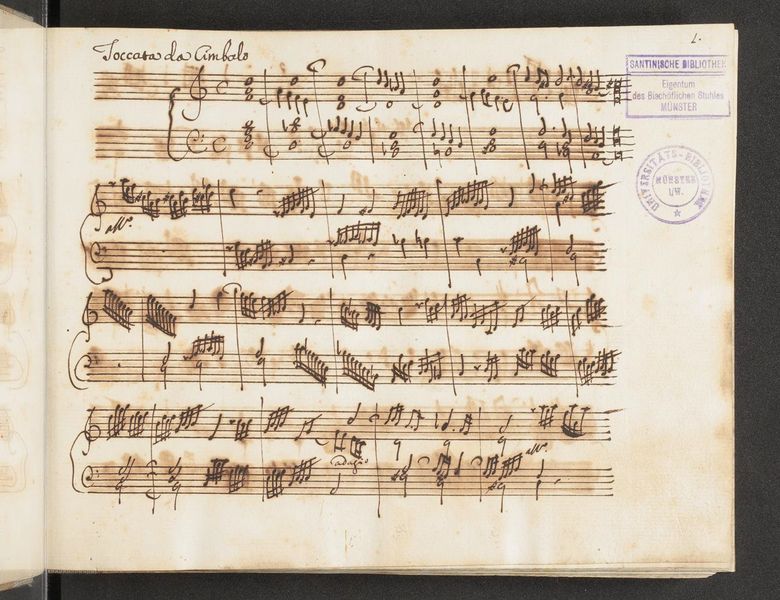 1.
Toccata da Cimbalo
SANTINISCHE BIBLIOTHEK
Eigentum
des Bischöflichen Stuhles
MÜNSTER
UNIVERSITÄTS-BIBLIOTHEK
MÜNSTER
i/W.
allo.
adagio
allo.